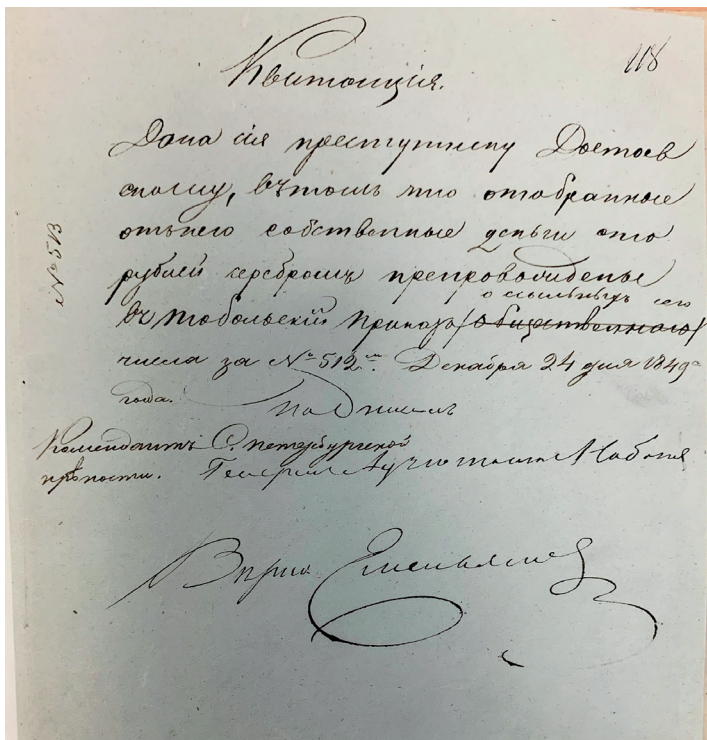 118
Квитанція.
Дана сія преступнику Достоев
скому, въ томъ что отобранные
отъ него собственные деньги сто
рублей серебромъ препровождены
о ссыльныхъ сего
въ Тобольскій Приказъ (общественнаго)
числа за № 512мъ. Декабря 24 дня 1849го
года.
Подписалъ
Комендантъ С. петербургской
крѣпости. Генералъ Адъютантъ Набоков
Верно Емельянов
№ 513